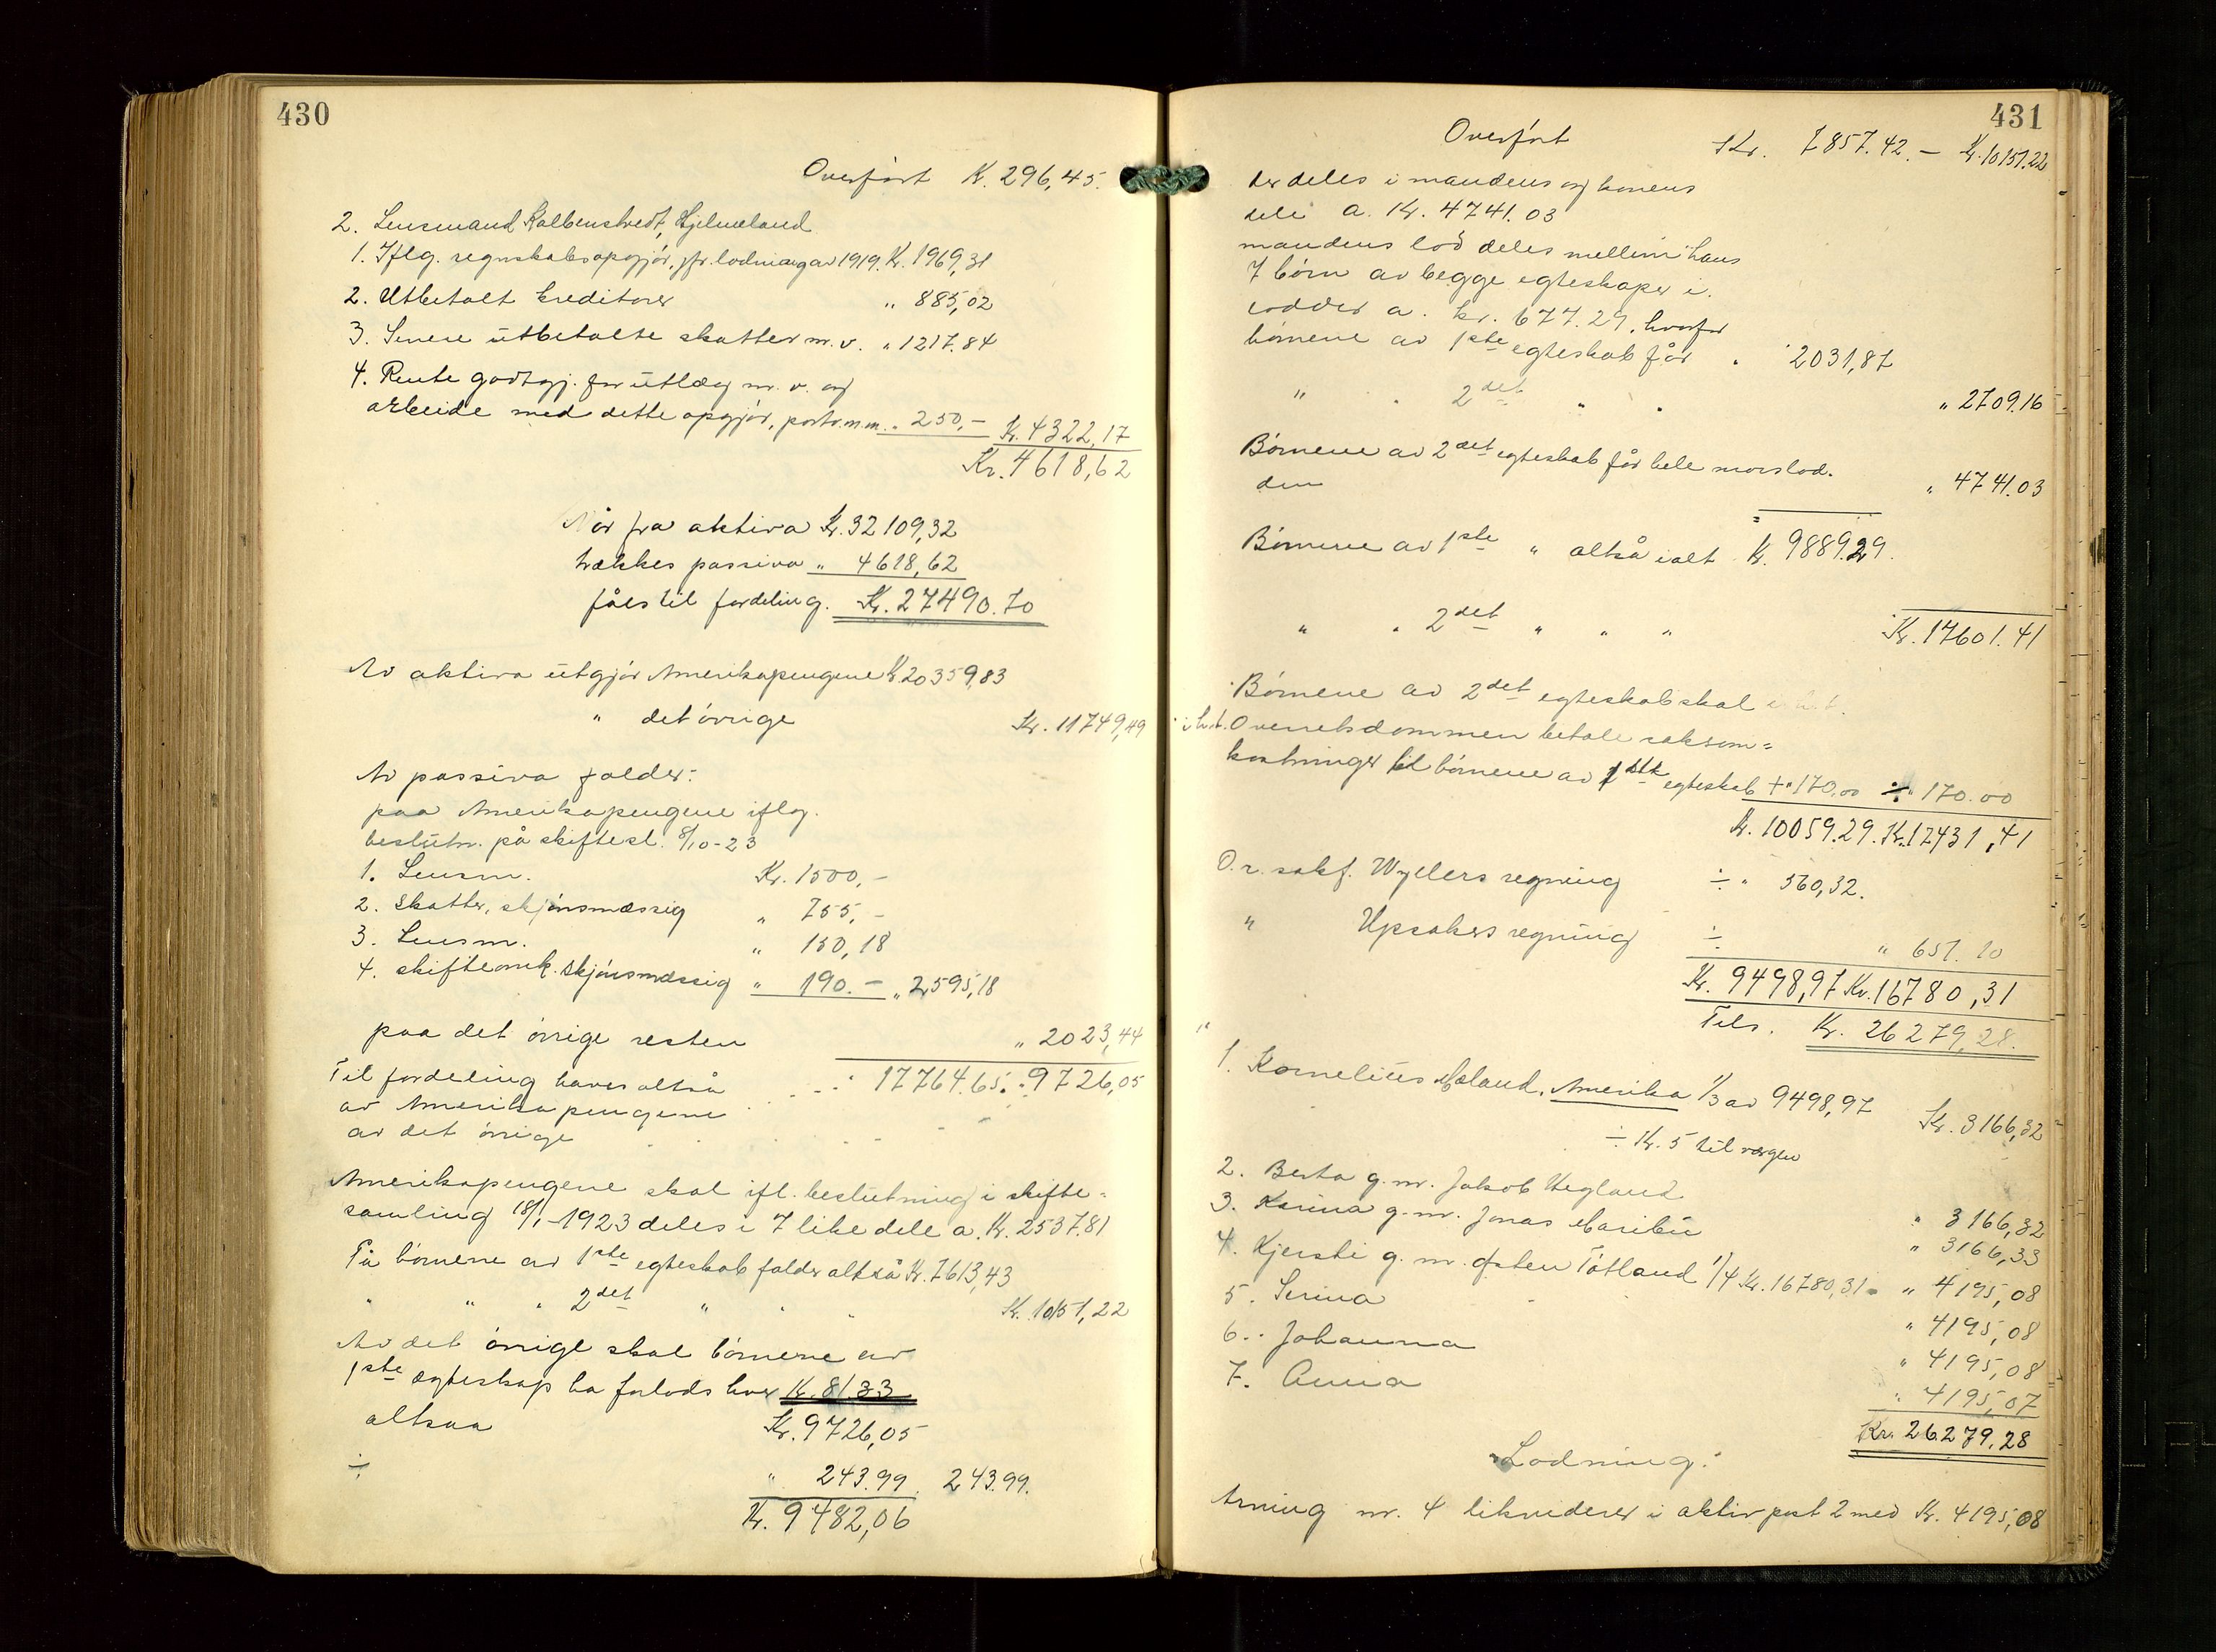 430
Overført K. 296,45.
2. Lensmand Kalbenstvedt, Hjelmeland
1. Iflg. regnskabsopgjør, jfr. lodning av 1919. Kr. 1969,31
2. Utbetalt kreditorer „ 885,02
3. Senere utbetalte skatter m. v. „ 1217.84
4. Rente godtgj. for utlæg m. v. og
arbeide med dette opgjør, porto m.m. „ 250,- Kr. 4322,17
Kr. 4618,62
Når fra aktiva Kr. 32109,32
trækkes passiva „ 4618,62
fåes til fordeling. Kr. 27490.70
Av aktiva utgjør Amerikapengene K. 20359,83
„ det øvrige Kr. 11749,49
Av passiva falder:
paa Amerikapengene iflg.
beslutn. på skiftesl. 8/10-23
1. Lensm. Kr. 1500,-
2. Skatter, skjønsmæssig „ 755,-
3. Lensm. „ 150,18
4. skifteomk. skjønsmæssig „ 190.- „ 2595,18
paa det øvrige resten „ 2023,44
Til fordeling haves altså 17764.65. 9726,05
av Amerikapengene
av det øvrige
Amerikapengene skal ifl. beslutning i skifte-
samling 18/1-1923 deles i 7 like dele a. Kr. 2537.81
På børnene av 1ste egteskab falder altså Kr. 7613,43
„ „ „ 2det „ „ „ Kr. 10151,22
Av det øvrige skal børnene av
1ste egteskap ha forlods hver Kr. 81.33
altsaa Kr. 9726,05
÷ „ 243.99. 243.99.
Kr. 9482,06
431
Overført Kr. 7857.42.- Kr. 10151.22
der deles i mandens og konens
dele a. Kr. 4741.03
mandens lod deles mellem hans
7 børn av begge egteskaper i
lodder a. kr. 677.29, hvorfor
børnene av 1ste egteskab får „ 2031,87
„ „ 2det „ „ „ 2709.16
Børnene av 2det egteskab får hele morslod.
den „ 4741.03
Børnene av 1ste „ altså ialt Kr. 9889.29.
„ „ 2det „ „ „ Kr. 17601.41
Børnene av 2det egteskab skal
i h.t. Overretsdommen betale saksom=
kostninger til børnene av 1ste egteskab + „ 170.00 ÷ „ 170.00
Kr. 10059.29. Kr. 17431,41
O.r. sakf. Wyllers regning ÷ „ 560,32.
„ Upsakers regning ÷ „ 651.10
Kr. 9498,97 Kr. 16780,31
Tils. Kr. 26279,28.
1. Kornelius Mæland, Amerika 1/3 av 9498,97 Kr. 3166,32
÷ Kr. 5 til værgen
2. Berta g. m. Jakob Hegland „ 3166,32
3. Karina g. m. Jonas Maribu „ 3166,33
4. Kjersti g. m. Østen Tøtland 1/4 Kr. 16780,31 „ 4195,08
5. Serina „ 4195,08
6. Johanna „ 4195,08
7. Anna „ 4195,07
Kr. 26279,28
Lodning:
Arving nr. 4 likviderer i aktiv post 2 med Kr. 4195,08